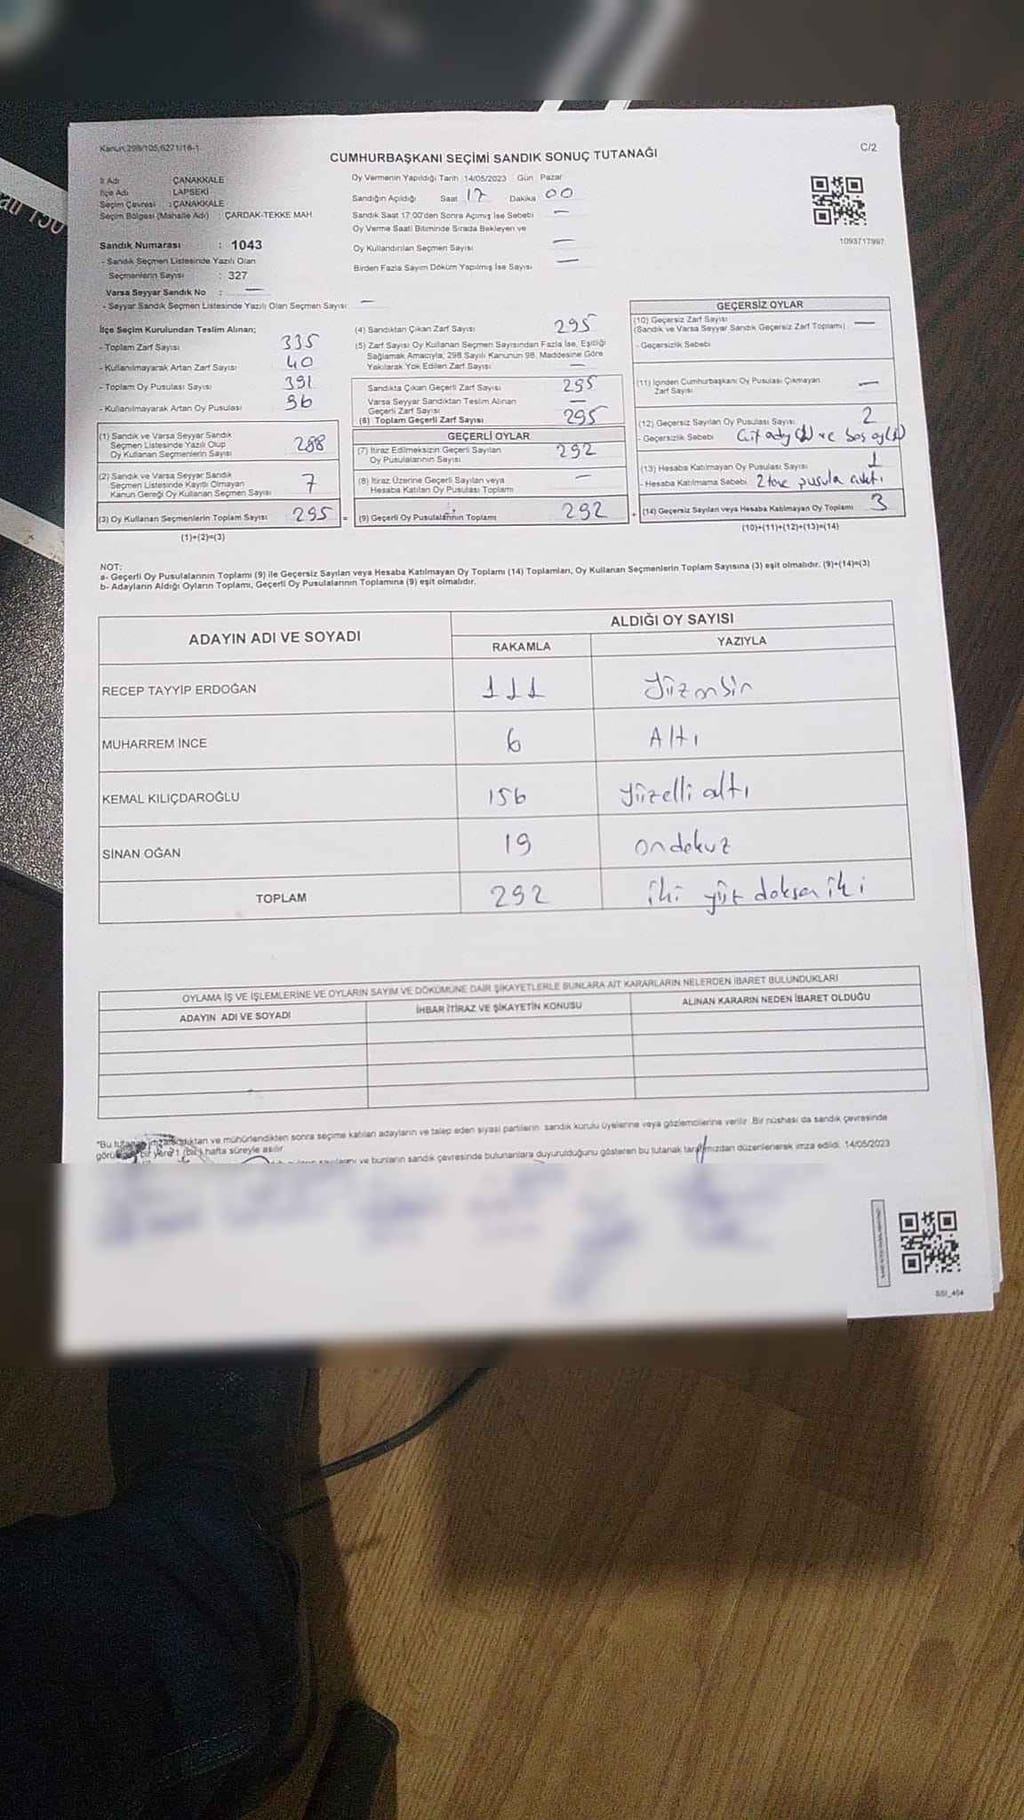 Kanun:298/105,6271/16-1
CUMHURBAŞKANI SEÇİMİ SANDIK SONUÇ TUTANAĞI
C/2
İl Adı ÇANAKKALE
İlçe Adı LAPSEKİ
Seçim Çevresi : ÇANAKKALE
Seçim Bölgesi (Mahalle Adı) : ÇARDAK-TEKKE MAH.
Oy Vermenin Yapıldığı Tarih 14/05/2023 Gün Pazar
Sandığın Açıldığı Saat 17 Dakika 00
Sandık Saat 17:00'den Sonra Açılmış İse Sebebi —
Oy Verme Saati Bitiminde Sırada Bekleyen ve
Oy Kullandırılan Seçmen Sayısı —
Birden Fazla Sayım Döküm Yapılmış İse Sayısı —
1093717997
Sandık Numarası : 1043
- Sandık Seçmen Listesinde Yazılı Olan
Seçmenlerin Sayısı : 327
Varsa Seyyar Sandık No : —
- Seyyar Sandık Seçmen Listesinde Yazılı Olan Seçmen Sayısı: —
İlçe Seçim Kurulundan Teslim Alınan;
- Toplam Zarf Sayısı 335
- Kullanılmayarak Artan Zarf Sayısı 40
- Toplam Oy Pusulası Sayısı 391
- Kullanılmayarak Artan Oy Pusulası 96
(1) Sandık ve Varsa Seyyar Sandık
Seçmen Listesinde Yazılı Olup
Oy Kullanan Seçmenlerin Sayısı 288
(2) Sandık ve Varsa Seyyar Sandık
Seçmen Listesinde Kayıtlı Olmayan
Kanun Gereği Oy Kullanan Seçmen Sayısı 7
(3) Oy Kullanan Seçmenlerin Toplam Sayısı 295
(1)+(2)=(3)
(4) Sandıktan Çıkan Zarf Sayısı 295
(5) Zarf Sayısı Oy Kullanan Seçmen Sayısından Fazla İse, Eşitliği
Sağlamak Amacıyla, 298 Sayılı Kanunun 98. Maddesine Göre
Yakılarak Yok Edilen Zarf Sayısı —
Sandıkta Çıkan Geçerli Zarf Sayısı 295
Varsa Seyyar Sandıktan Teslim Alınan
Geçerli Zarf Sayısı —
(6) Toplam Geçerli Zarf Sayısı 295
GEÇERLİ OYLAR
(7) İtiraz Edilmeksizin Geçerli Sayılan
Oy Pusulalarının Sayısı 292
(8) İtiraz Üzerine Geçerli Sayılan veya
Hesaba Katılan Oy Pusulası Toplamı —
(9) Geçerli Oy Pusulalarının Toplamı 292
GEÇERSİZ OYLAR
(10) Geçersiz Zarf Sayısı
(Sandık ve Varsa Seyyar Sandık Geçersiz Zarf Toplamı) —
- Geçersizlik Sebebi
(11) İçinden Cumhurbaşkanı Oy Pusulası Çıkmayan
Zarf Sayısı —
(12) Geçersiz Sayılan Oy Pusulası Sayısı 2
- Geçersizlik Sebebi ve boş
(13) Hesaba Katılmayan Oy Pusulası Sayısı 1
- Hesaba Katılmama Sebebi 2 tane pusula
(14) Geçersiz Sayılan veya Hesaba Katılmayan Oy Toplamı 3
(10)+(11)+(12)+(13)=(14)
NOT:
a- Geçerli Oy Pusulalarının Toplamı (9) ile Geçersiz Sayılan veya Hesaba Katılmayan Oy Toplamı (14) Toplamları, Oy Kullanan Seçmenlerin Toplam Sayısına (3) eşit olmalıdır. (9)+(14)=(3)
b- Adayların Aldığı Oyların Toplamı, Geçerli Oy Pusulalarının Toplamına (9) eşit olmalıdır.
ADAYIN ADI VE SOYADI
ALDIĞI OY SAYISI
RAKAMLA YAZIYLA
RECEP TAYYİP ERDOĞAN 111 Yüzonbir
MUHARREM İNCE 6 Altı
KEMAL KILIÇDAROĞLU 156 yüzelli altı
SİNAN OĞAN 19 ondokuz
TOPLAM 292 iki yüz doksan iki
OYLAMA İŞ VE İŞLEMLERİNE VE OYLARIN SAYIM VE DÖKÜMÜNE DAİR ŞİKAYETLERLE BUNLARA AİT KARARLARIN NELERDEN İBARET BULUNDUKLARI
ADAYIN ADI VE SOYADI İHBAR İTİRAZ VE ŞİKAYETİN KONUSU ALINAN KARARIN NEDEN İBARET OLDUĞU
*Bu tutanak ve mühürlendikten sonra seçime katılan adayların ve talep eden siyasi partilerin sandık kurulu üyelerine veya gözlemcilerine verilir. Bir nüshası da sandık çevresinde
bir yere 1 (bir) hafta süreyle asılır.
ve bunların sandık çevresinde bulunanlara duyurulduğunu gösteren bu tutanak tarafımızdan düzenlenerek imza edildi. 14/05/2023